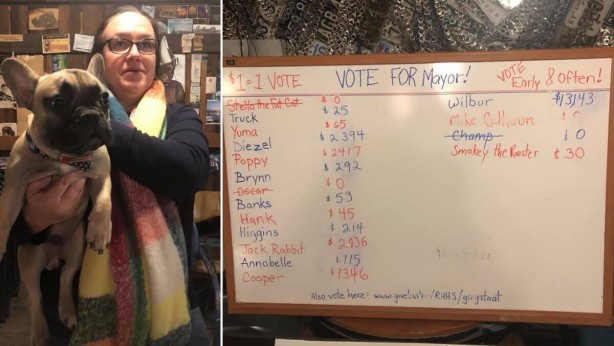 $1=1 VOTE VOTE FOR Mayor! VOTE Early & Often!
Stella the Fat Cat $ 0
Truck $ 25
Yuma $ 65
Diezel $ 2394
Poppy $ 2417
Brynn $ 292
Oscar $ 0
Banks $ 53
Hank $ 45
Higgins $ 214
Jack Rabbit $ 2,936
Annabelle $ 115
Cooper $ 1346
Wilbur $13,143
Mike Calhoun
Champ 0
Smokey the Rooster $ 30
Also vote here: